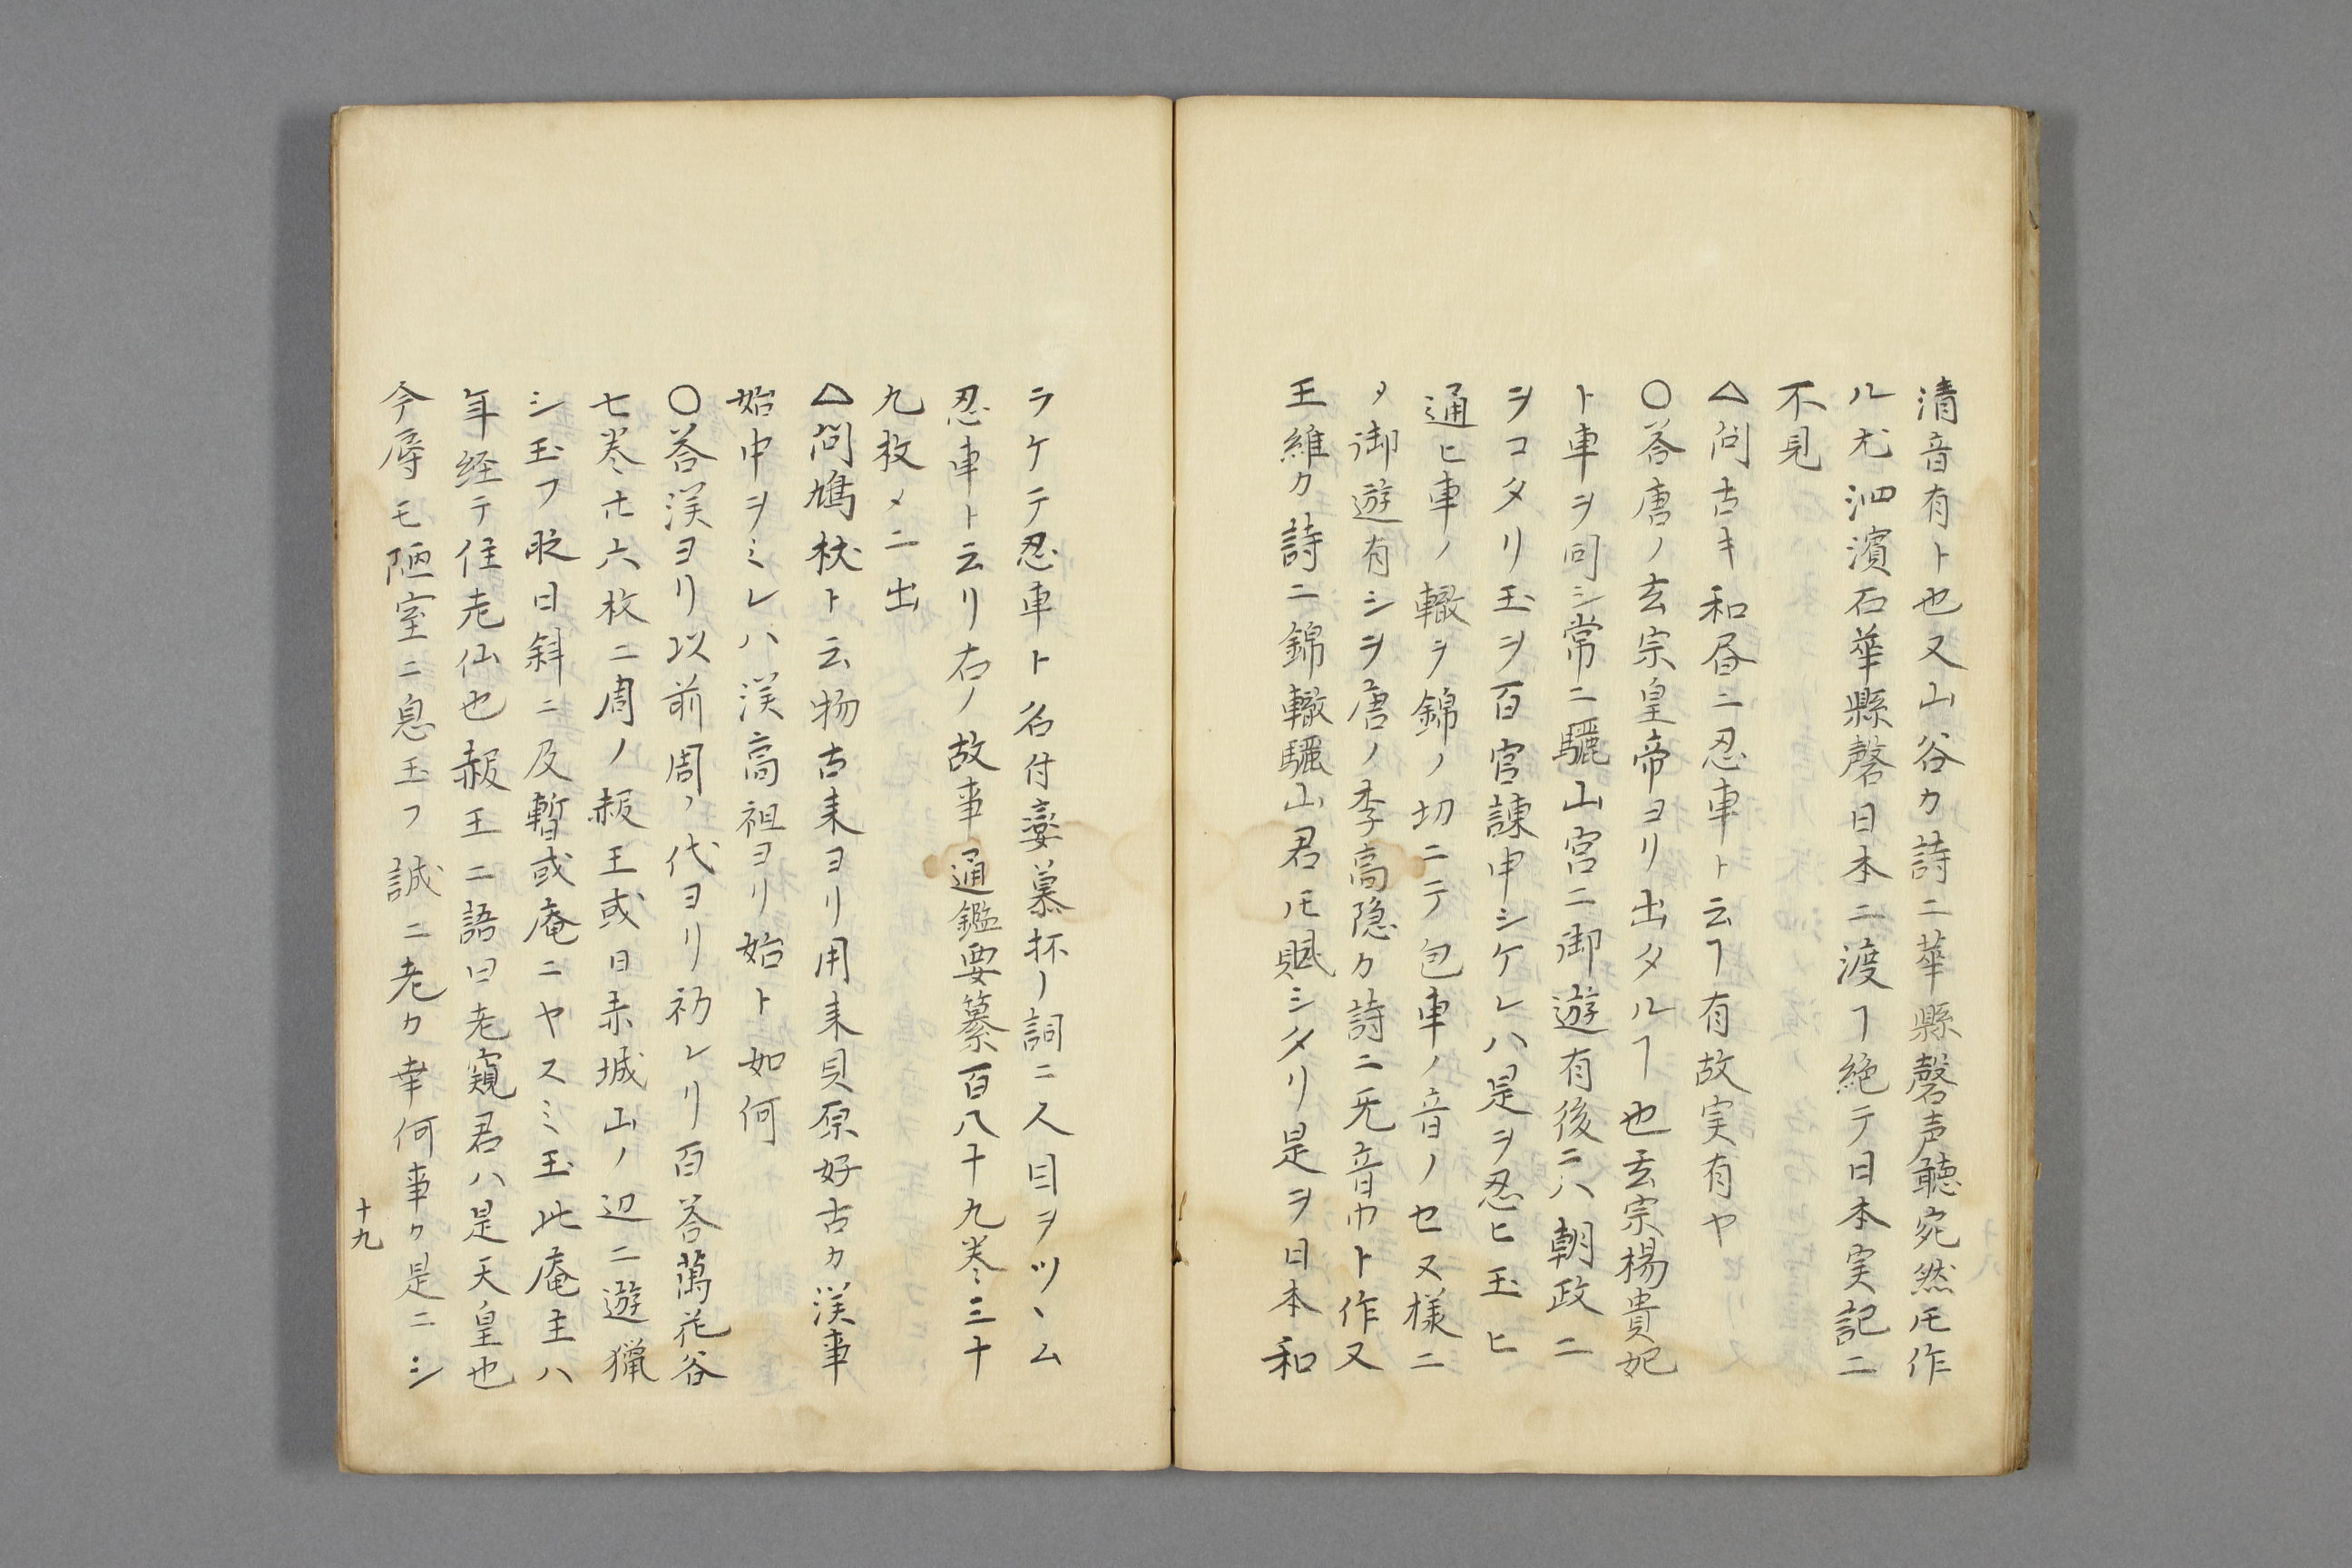 清音有ト也又山谷カ詩ニ華縣磬声聽宛然𪜈作
ル尤泗濱石華縣磬日本ニ渡ヿ絶テ日本実記ニ
不見
△問古キ和昏ニ忍車ト云ヿ有故実有ヤ
○答唐ノ玄宗皇帝ヨリ出タルヿ也玄宗楊貴妃
ト車ヲ同シ常ニ驪山宮ニ御遊有後ニハ朝政ニ
ヲコタリ玉ヲ百官諌申シケレハ是ヲ忍ヒ玉ヒ
通ヒ車ノ轍ヲ錦ノ切ニテ包車ノ音ノセヌ様ニ
〆御遊有シヲ唐ノ李高隐カ詩ニ旡音巾ト作又
王維カ詩ニ錦轍驪山君𪜈賦シタリ是ヲ日本和
ラケテ忍車ト名付戀慕抔ノ詞ニ人目ヲツヽム
忍車ト云リ右ノ故事通鑑要纂百八十九巻三十
九枚メニ出
△問鳩杖ト云物古来ヨリ用来貝原好古カ漢事
始中ヲミレハ漢高祖ヨリ始ト如何
○荅漢ヨリ以前周ノ代ヨリ初レリ百荅萬花谷
七巻廿六枚ニ周ノ赧王或日赤城山ノ辺ニ遊獵
シ玉フ㫁日斜ニ及暫或庵ニヤスミ玉此庵主ハ
年経テ住老仙也赧王ニ語曰老窺君ハ是天皇也
今辱モ陋室ニ息玉フ誠ニ老カ幸何事カ是ニシ
十九